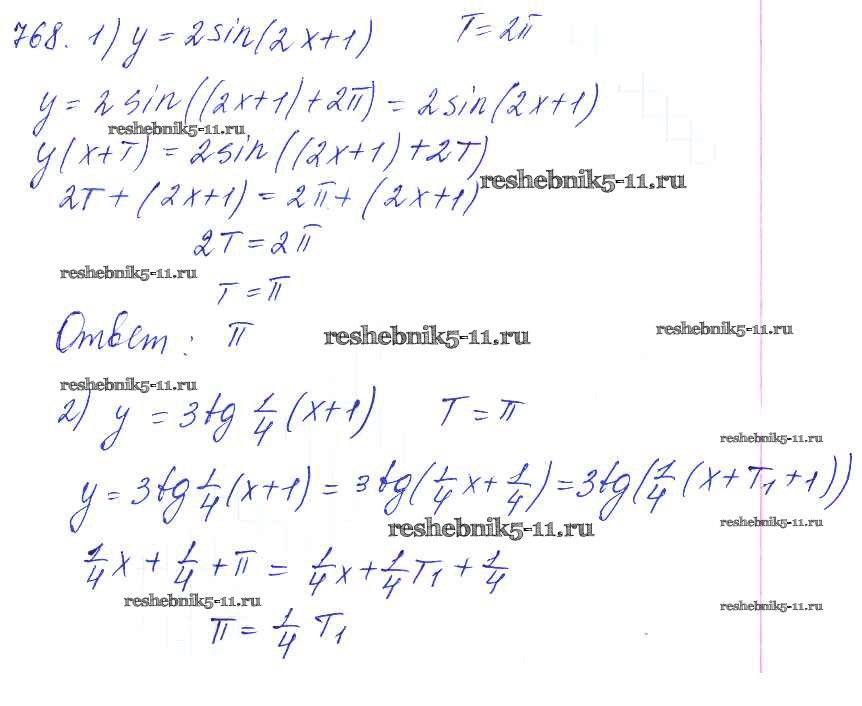 768. 1) y = 2sin(2x+1) T = 2π
y = 2sin((2x+1)+2π) = 2sin(2x+1)
reshebnik5-11.ru
y(x+T) = 2sin((2x+1)+2T)
reshebnik5-11.ru
2T + (2x+1) = 2π + (2x+1)
2T = 2π
reshebnik5-11.ru
T = π
Ответ: π
reshebnik5-11.ru
reshebnik5-11.ru
reshebnik5-11.ru
2) y = 3tg 1/4 (x+1) T = π
reshebnik5-11.ru
y = 3tg 1/4 (x+1) = 3tg(1/4 x + 1/4) = 3tg(1/4 (x+T₁+1))
reshebnik5-11.ru
reshebnik5-11.ru
1/4 x + 1/4 + π = 1/4 x + 1/4 T₁ + 1/4
reshebnik5-11.ru
reshebnik5-11.ru
π = 1/4 T₁